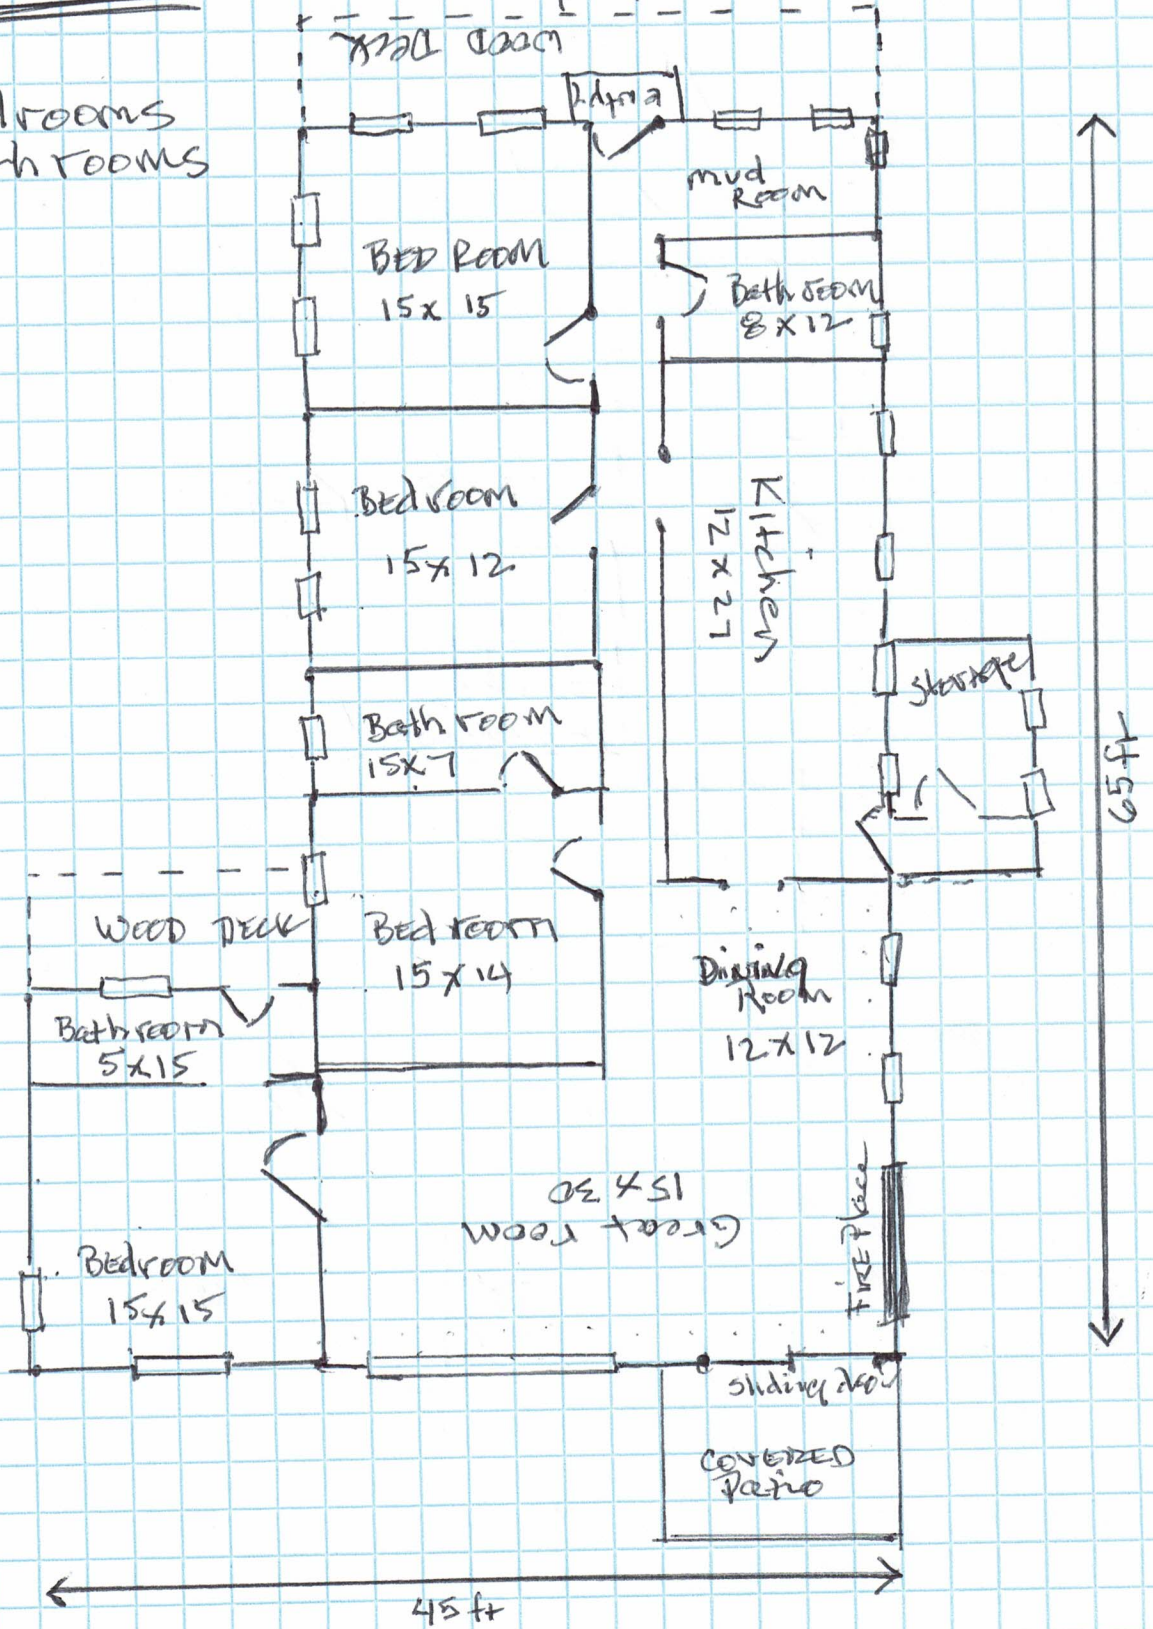 WOOD DECK
drooms
hrooms
mud
ROOM
BED ROOM
15 x 15
Bathroom
8 x 12
Bedroom
15 x 12
Kitchen
12 x 27
storage
Bathroom
15x7
65 ft
WOOD DECK
Bedroom
15 x 14
Dining
Room
12 x 12
Bathroom
5 x 15
Great room
15 x 30
Fire Place
Bedroom
15 x 15
sliding
COVERED
Patio
45 ft